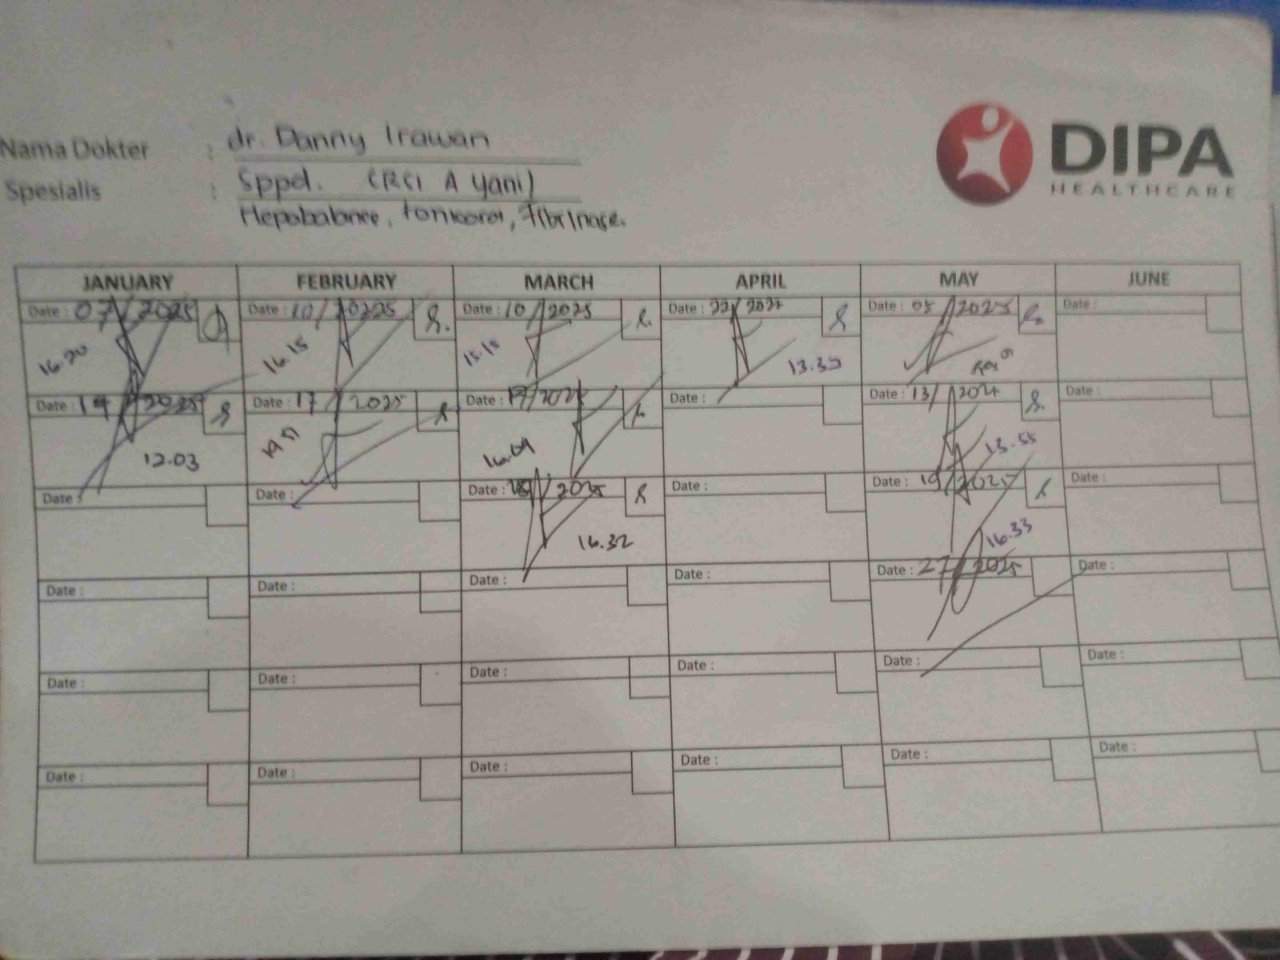 DIPA
HEALTHCARE
Nama Dokter : dr. Danny Irawan
Spesialis : Sppd. (RSI A Yani)
Hepabalance, Fibrinase.
JANUARY FEBRUARY MARCH APRIL MAY JUNE
Date : 07/2025 Date : 10/2025 Date : 10/2025 Date : 22/202 Date : 05/2025 Date :
16.20 16.15 15.15 13.35
Date : 14/2025 Date : 17/2025 Date : 17/202 Date : Date : 13/202 Date :
12.03 16.09 13.55
Date : Date : Date : 18/2025 Date : Date : 19/2025 Date :
16.32 16.33
Date : Date : Date : Date : Date : 27/2025 Date :
Date : Date : Date : Date : Date : Date :
Date : Date : Date : Date : Date : Date :